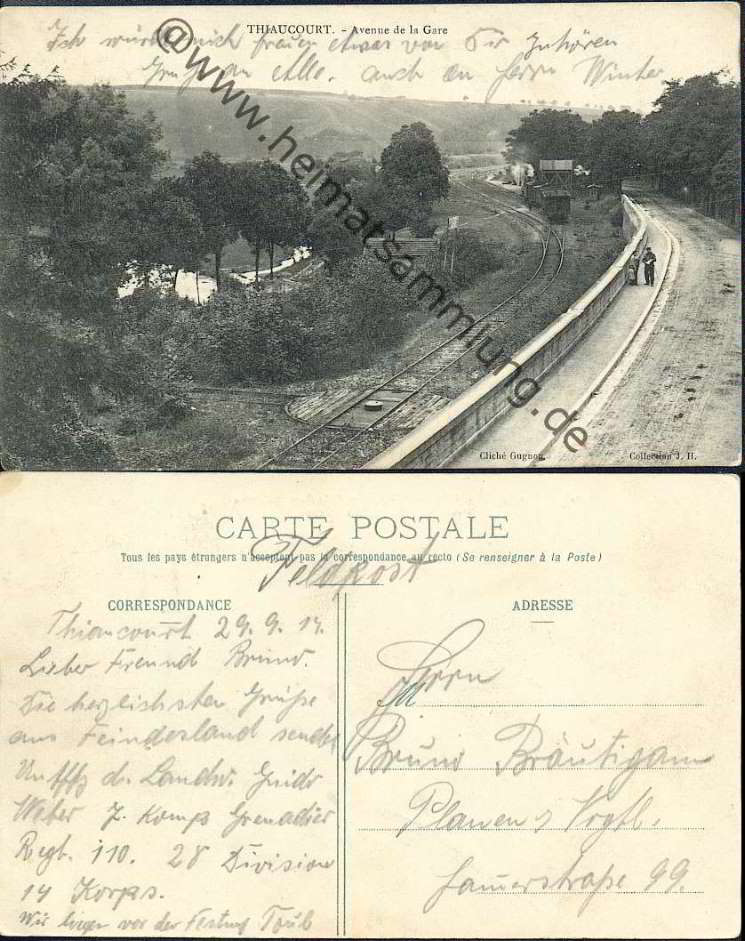 THIAUCOURT. - Avenue de la Gare
Ich würde mich freuen etwas von Dir zu hören
Gruß an Alle. auch an Herrn Winter
@www.heimatsammlung.de
Cliché Gugnon Collection J. H.
CARTE POSTALE
Tous les pays étrangers n'acceptent pas la correspondance au recto (Se renseigner à la Poste)
Feldpost
CORRESPONDANCE
Thiaucourt 29.9.14.
Lieber Freund Bruno.
Die herzlichsten Grüße
aus Feindesland sendet
d. Landw. Guido
Weber 7. Komp Grenadier
Regt. 110. 28 Division
14 Korps.
Wir liegen vor der Festung Toul
ADRESSE
Herrn
Bruno Bräutigam
Plauen i Vogtl.
99.